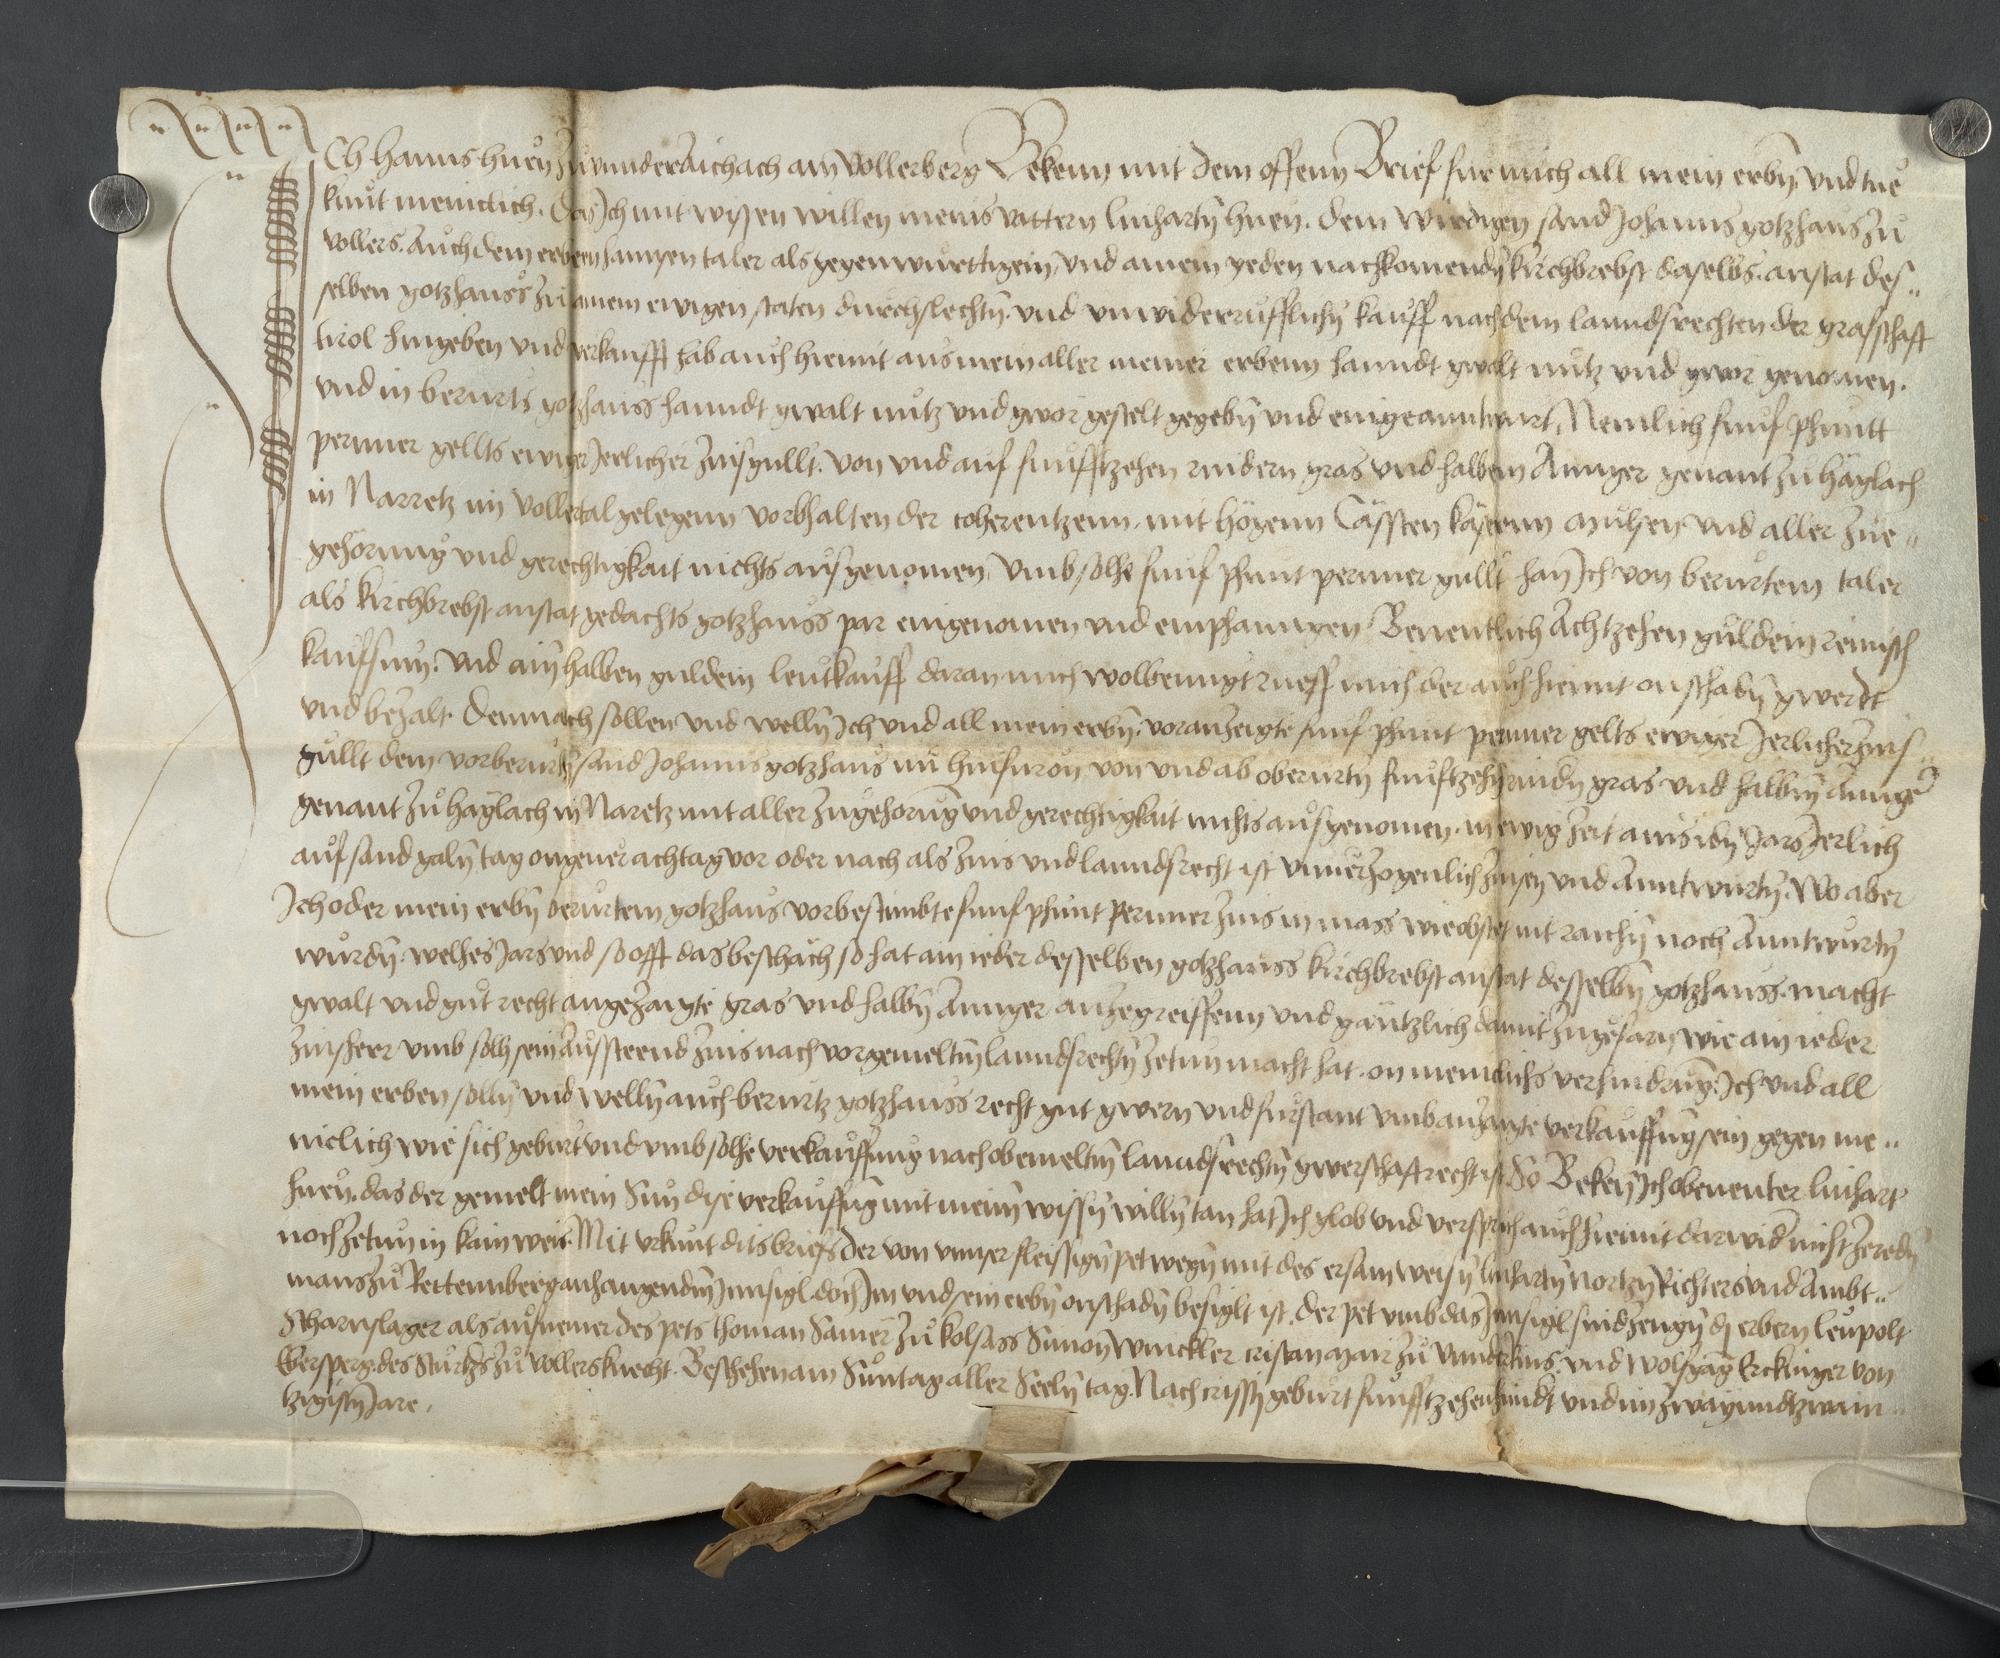 Ich Hanns Huen zu unnder Aichach am Vollerberg Bekenn mit dem offenn Brief fur mich all mein erbn̄ vnd tue
kunt meniclich. Das Ich mit wissen willen meins vattern linhartn̄ huen. dem wirdigen sand Johanns gotzhaus zu
vollers. Auch dem erbern hannsen taler als gegenwurttigem, vnd ainem yeden nachkomendn̄ kirchbrebst daselbs. anstat des„
selben gotzhauss zu ainem ewigen staten durchslechtn̄. vnd vnwiderrufflichn̄ kauff nach dem lanndsrechten der graffschaft
tirol hingeben vnd verkaufft hab auch hiemit aus mein aller meiner erbenn hanndt gwalt nutz vnd gwer genomen.
vnd in berurts gotzhauss hanndt gwalt nutz vnd gwer gestelt gegebn̄ vnd eingeanntwurt, Nemlich funf phuntt
pernner gellts ewiger Jerlicher zinsgullt. von vnd auf funfftzehen rindern gras vnd halbem Annger genant zu haglach
in Narretz im vollertal gelegenn vorbhalten der coherentzenn. mit högenn Cässten kässern mulsen vnd aller zue„
gehörung vnd gerechtigkait nichts ausgenomen, vmb solhe funf phunt pernner gullt han Ich von berurtem taler
als kirchbrebst anstat gedachts gotzhauss par eingenomen vnd emphanngen Benentlich Achtzehen guldein reinisch
kaufsum. vnd ain̄ halben guldein leutkauff daran mich wolbenugt rueff mich der auch hiemit on schadn̄ gwerdt
vnd bezalt. Demnach sollen vnd welln̄ Ich vnd all mein erbn̄. voranzeigte funf phunt pernner gelts ewiger Jerlicher zins„
gullt dem vorberurtn̄ sand Johanns gotzhaus nu hinfuron von vnd ab oberurtn̄ funftzehn̄ rindn̄ gras vnd halbm̄ Annger
genant zu haglach in Naretz mit aller zugehorung vnd gerechtigkait nichts ausgenomen. in ewig zeit ains idn̄ Jars Jerlich
auf sand galn̄ tag ongeuer achtag vor oder nach als zins vnd lanndsrecht ist vnuerzogenlich zinsen vnd Anntwurtn̄. Wo aber
Ich oder mein erbn̄ berurtem gotzhaus vorbestimbte funf phunt Pernner zins in mass wie obstet nit raichn̄ noch Anntwurtn̄
wurdn̄. welhes Jars vnd so offt das beschach so hat ain ieder desselben gotzhauss kirchbrebst anstat desselbn̄ gotzhauss. macht
gwalt vnd gut recht angezaigte gras vnd halbn̄ Annger anzegreiffenn vnd gäntzlich damit zugefarn wie ain ieder
zinsherr vmb solh sein Aussteend zins nach vorgemeltm̄ lanndsrechtn̄ zetun macht hat. on meniclichs verhindrung. Ich vnd all
mein erben solln̄ vnd welln̄ auch berurtz gotzhauss recht gut gwern vnd furstant vmb anzaigte verkauffung sein gegen me„
niclich wie sich geburt vnd vmb solhe verkauffung nach obemeltm̄ lanndsrechtn̄ gwerschaft recht ist. So Beken̄ Ich obenenter linhart
huen. das der gemelt mein Sun dise verkauffung mit meinn̄ wissn̄ willn̄ tan hat Ich glob vnd versprich auch hiemit darwidn̄ nicht ze redn̄
noch zetun in kain weis. Mit vrkunt dits briefs Der von vnnser fleissign̄ pet wegn̄ mit des ersam weisn̄ linhartn̄ nortzn̄ Richters vnd Ambt„
mans zu Rettennberg anhangendm̄ Innsigl. doch Im vnd sein erbn̄ onschadn̄ besiglt ist. der pet vmb das Innsigl sind zeugn̄ dj erbern leupolt
Scharnslager als aufnemer des pets thoman Samer zu kolsass Simon winckler cristan mair zu vnnderlins. vnd wolfgang Erckinger von
Gersperg. des Sturtzs zu vollers knecht. Beschehen am Suntag aller Seeln̄ tag. Nach cristj geburt funfftzehenhundt vnd im zwayundtzwain„
tzigistn̄ Jare.